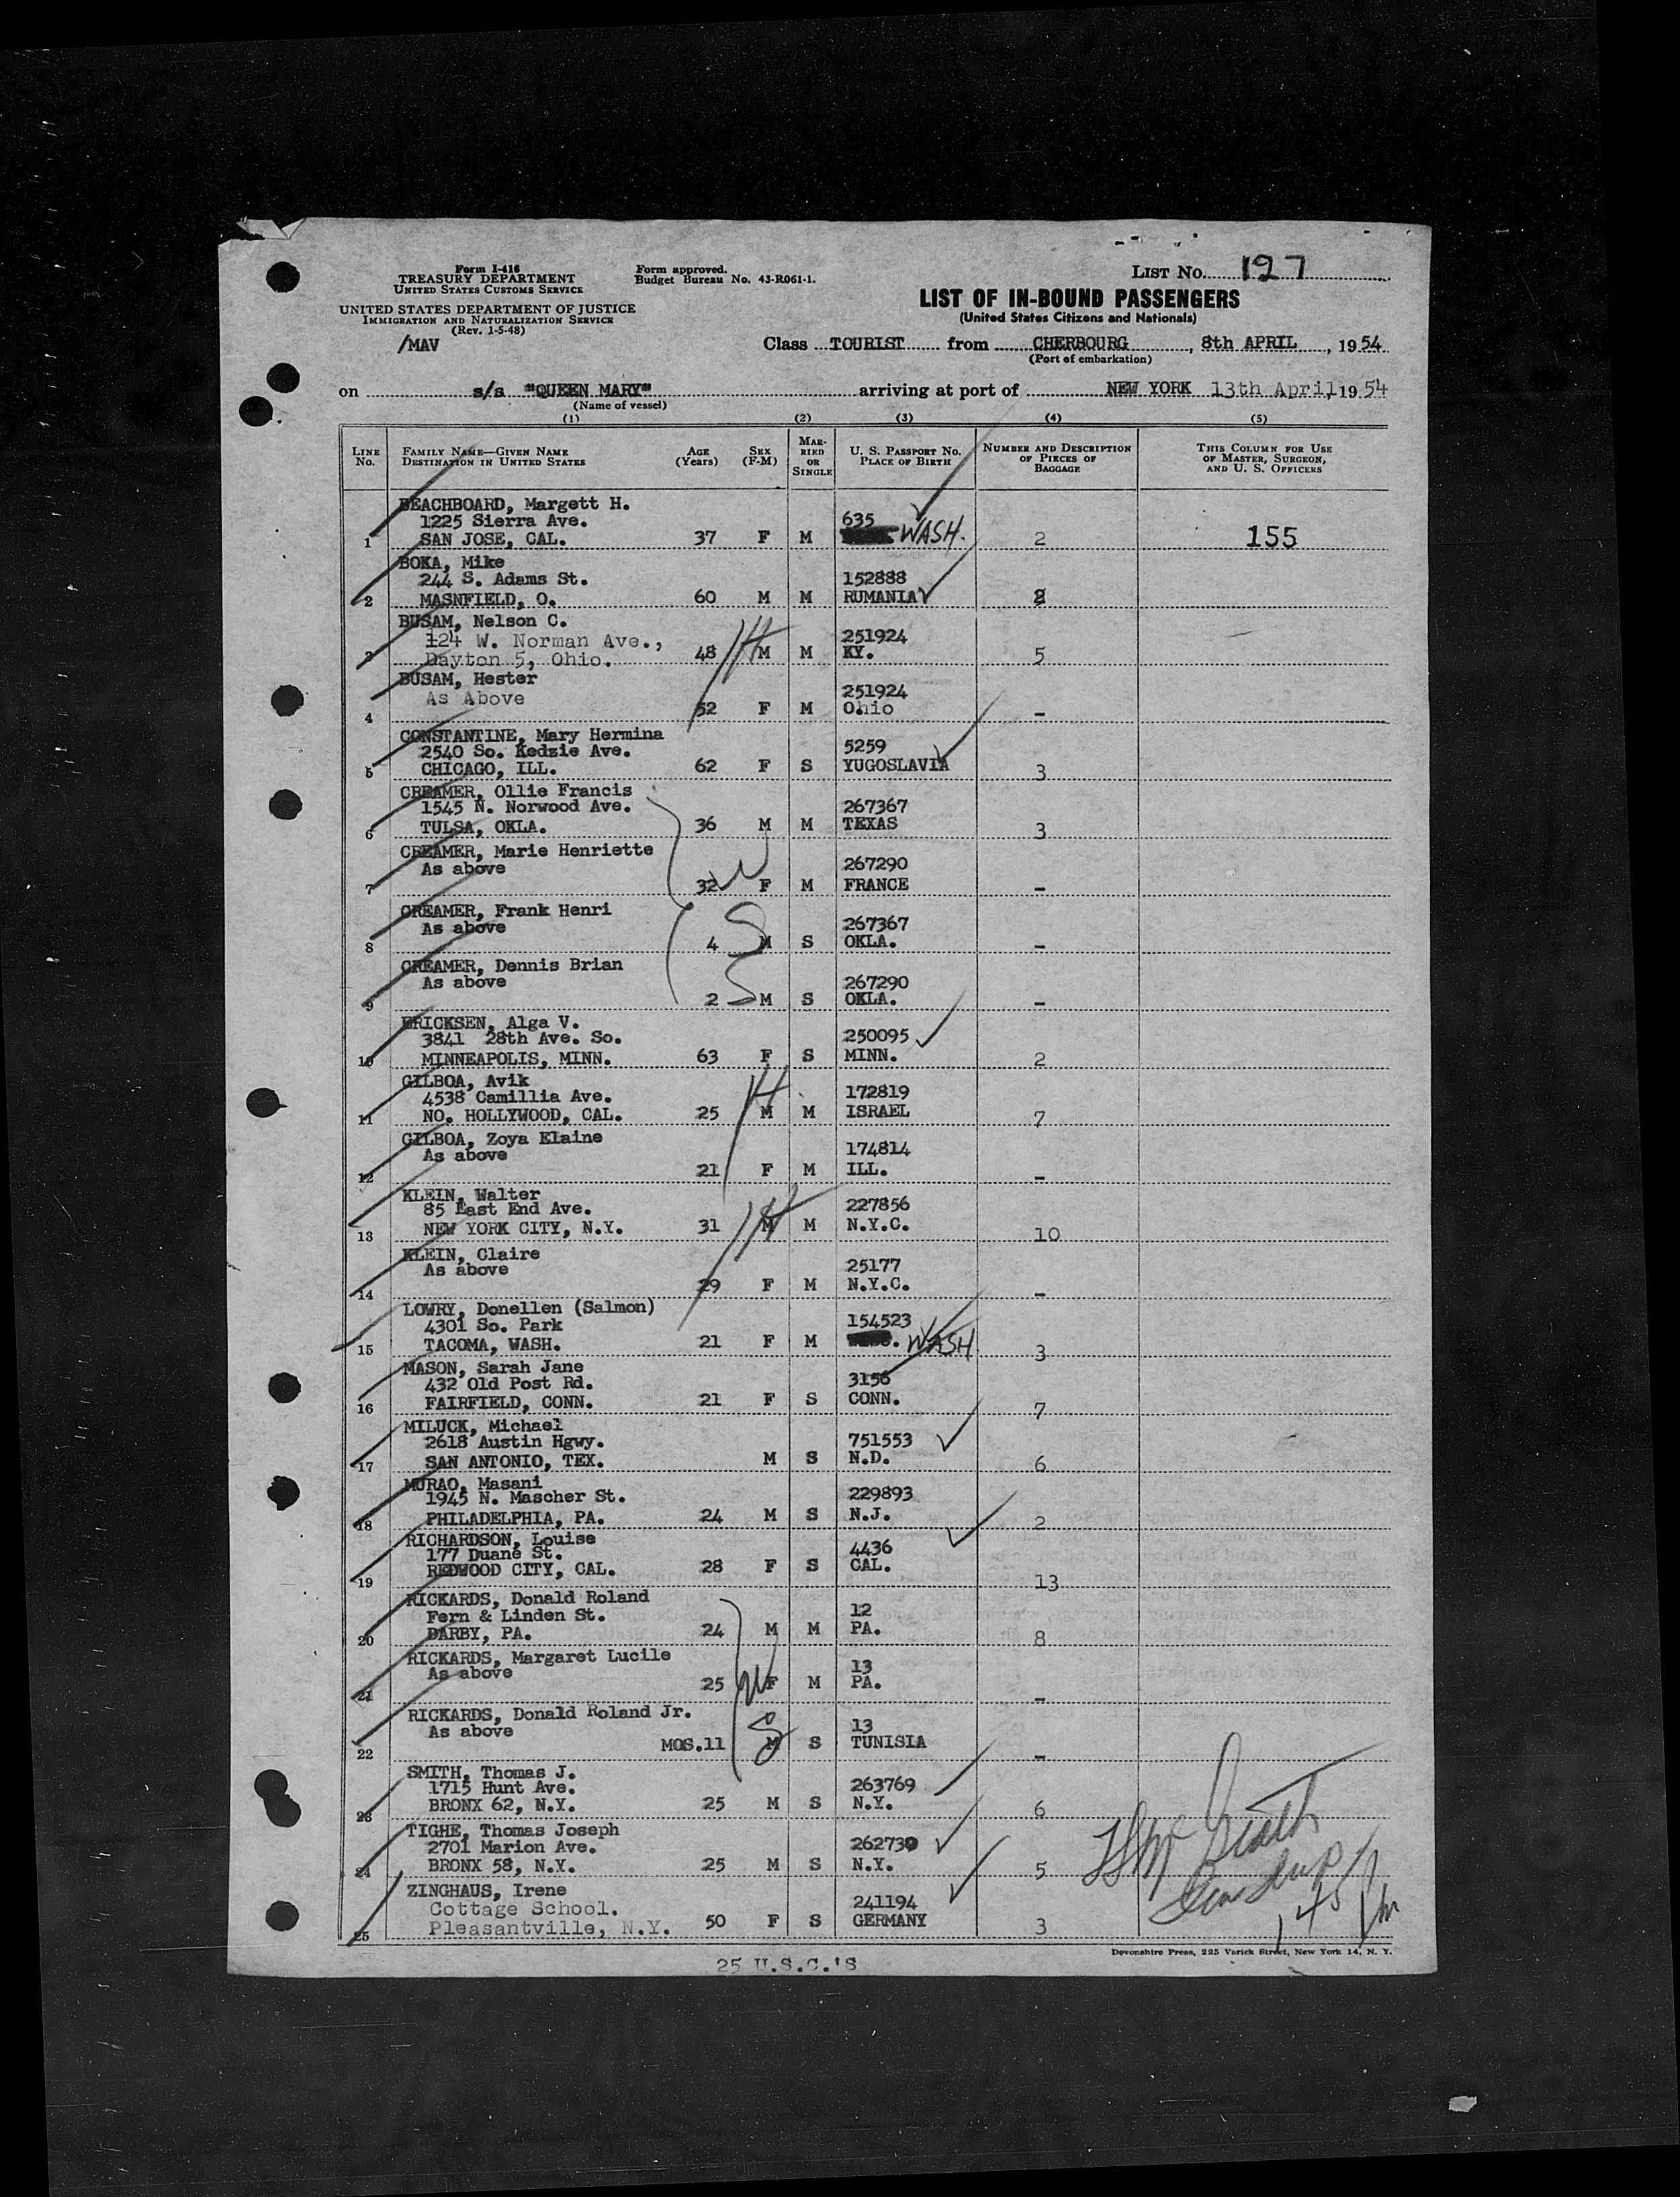 Form I-416
TREASURY DEPARTMENT
UNITED STATES CUSTOMS SERVICE
UNITED STATES DEPARTMENT OF JUSTICE
IMMIGRATION AND NATURALIZATION SERVICE
(Rev. 1-5-48)
/MAV
Form approved.
Budget Bureau No. 43-R061-1.
LIST No. 127
LIST OF IN-BOUND PASSENGERS
(United States Citizens and Nationals)
Class TOURIST from CHERBOURG, 8th APRIL, 1954
(Port of embarkation)
on s/s "QUEEN MARY" arriving at port of NEW YORK 13th April, 1954
(Name of vessel)
(1) (2) (3) (4) (5)
LINE No. FAMILY NAME—GIVEN NAME DESTINATION IN UNITED STATES AGE (Years) SEX (F-M) MARRIED OR SINGLE U. S. PASSPORT NO. PLACE OF BIRTH NUMBER AND DESCRIPTION OF PIECES OF BAGGAGE THIS COLUMN FOR USE OF MASTER, SURGEON, AND U. S. OFFICERS
BEACHBOARD, Margett H.
1225 Sierra Ave. 635
1 SAN JOSE, CAL. 37 F M WASH. 2 155
BOKA, Mike
244 S. Adams St. 152888
2 MASNFIELD, O. 60 M M RUMANIA 2
BUSAM, Nelson C.
124 W. Norman Ave., 251924
3 Dayton 5, Ohio. 48 M M KY. 5
BUSAM, Hester
As Above 251924
4 52 F M Ohio -
CONSTANTINE, Mary Hermina
2540 So. Kedzie Ave. 5259
5 CHICAGO, ILL. 62 F S YUGOSLAVIA 3
CREAMER, Ollie Francis
1545 N. Norwood Ave. 267367
6 TULSA, OKLA. 36 M M TEXAS 3
CREAMER, Marie Henriette
As above 267290
7 32 F M FRANCE -
CREAMER, Frank Henri
As above 267367
8 4 M S OKLA. -
CREAMER, Dennis Brian
As above 267290
9 2 M S OKLA. -
ERICKSEN, Alga V.
3841 28th Ave. So. 250095
10 MINNEAPOLIS, MINN. 63 F S MINN. 2
GILBOA, Avik
4538 Camillia Ave. 172819
11 NO. HOLLYWOOD, CAL. 25 M M ISRAEL 7
GILBOA, Zoya Elaine
As above 174814
12 21 F M ILL. -
KLEIN, Walter
85 East End Ave. 227856
13 NEW YORK CITY, N.Y. 31 M M N.Y.C. 10
KLEIN, Claire
As above 25177
14 29 F M N.Y.C. -
LOWRY, Donellen (Salmon)
4301 So. Park 154523
15 TACOMA, WASH. 21 F M WASH 3
MASON, Sarah Jane
432 Old Post Rd. 3156
16 FAIRFIELD, CONN. 21 F S CONN. 7
MILUCK, Michael
2618 Austin Hgwy. 751553
17 SAN ANTONIO, TEX. M S N.D. 6
MURAO, Masani
1945 N. Mascher St. 229893
18 PHILADELPHIA, PA. 24 M S N.J. 2
RICHARDSON, Louise
177 Duane St. 4436
19 REDWOOD CITY, CAL. 28 F S CAL. 13
RICKARDS, Donald Roland
Fern & Linden St. 12
20 DARBY, PA. 24 M M PA. 8
RICKARDS, Margaret Lucile
As above 13
21 25 F M PA. -
RICKARDS, Donald Roland Jr.
As above 13
22 MOS.11 M S TUNISIA -
SMITH, Thomas J.
1715 Hunt Ave. 263769
23 BRONX 62, N.Y. 25 M S N.Y. 6
TIGHE, Thomas Joseph
2701 Marion Ave. 262730
24 BRONX 58, N.Y. 25 M S N.Y. 5
ZINGHAUS, Irene
Cottage School. 241194
25 Pleasantville, N.Y. 50 F S GERMANY 3
Devonshire Press, 225 Varick Street, New York 14, N. Y.
25 U.S.C.'S